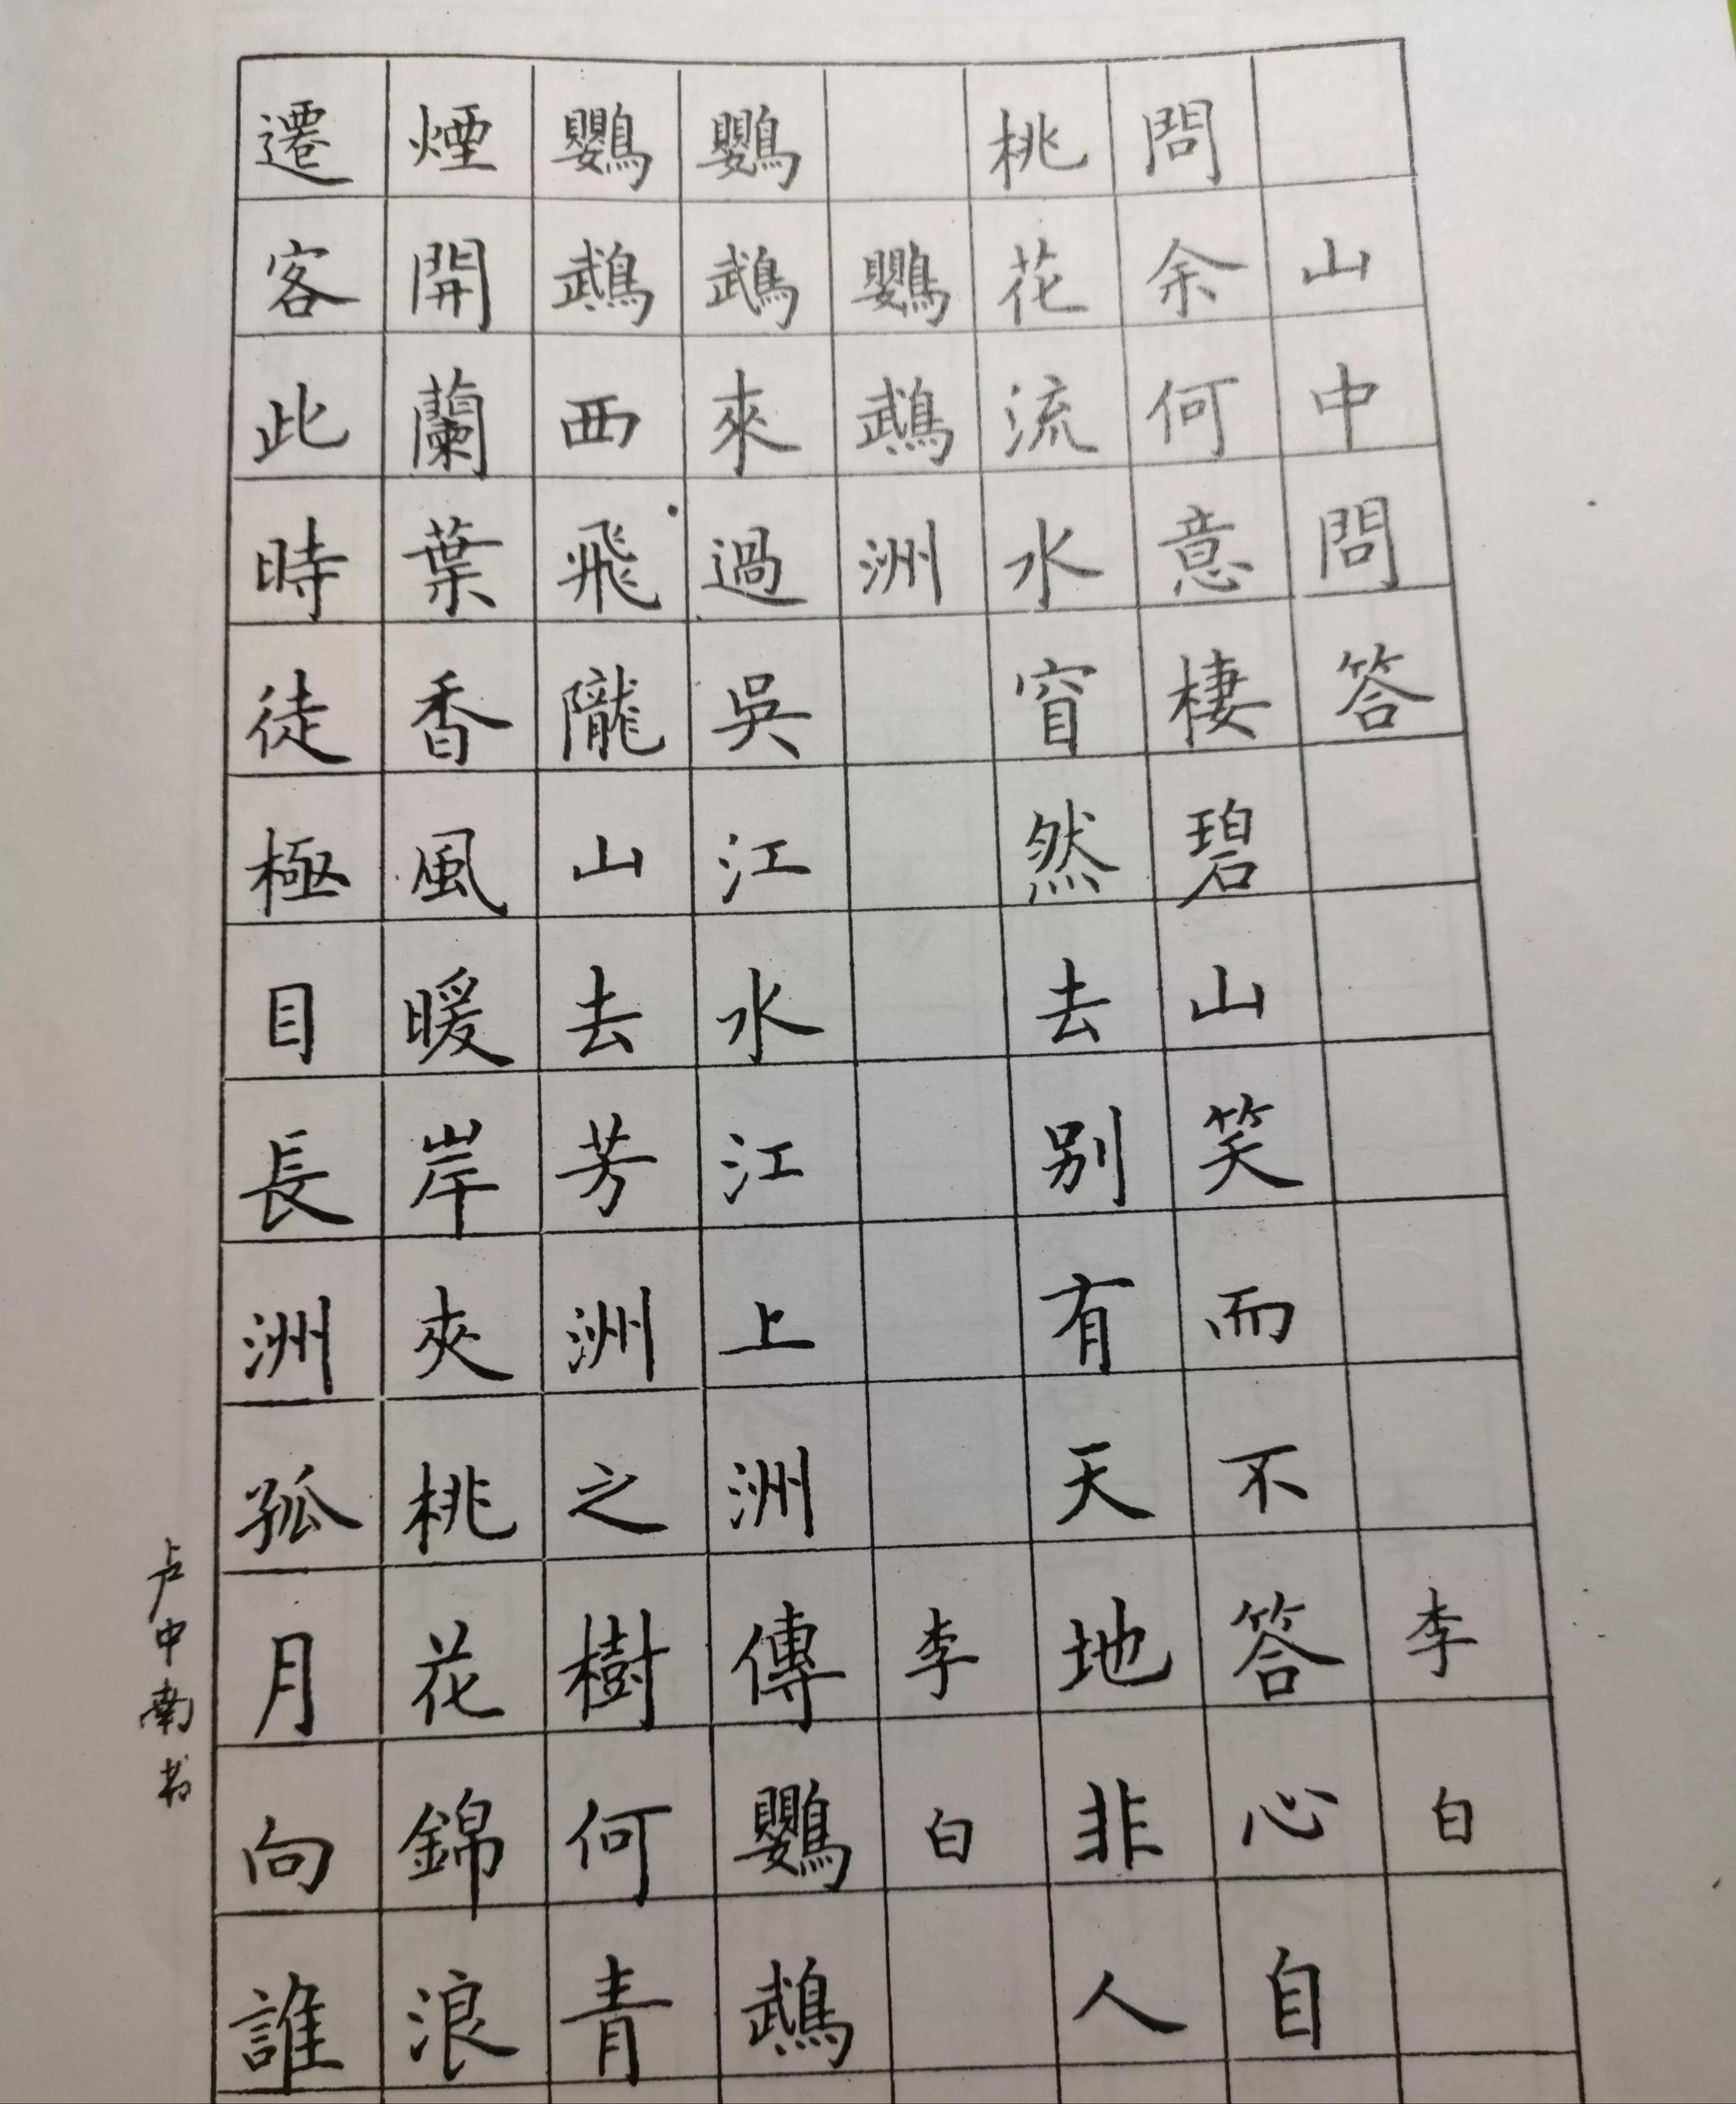 山中問答 李白
問余何意棲碧山笑而不答心自
桃花流水窅然去别有天地非人
鸚鵡洲 李白
鸚鵡來過吳江水江上洲傳鸚鵡
鸚鵡西飛隴山去芳洲之樹何青
煙開蘭葉香風暖岸夾桃花錦浪
遷客此時徒極目長洲孤月向誰
卢中南书